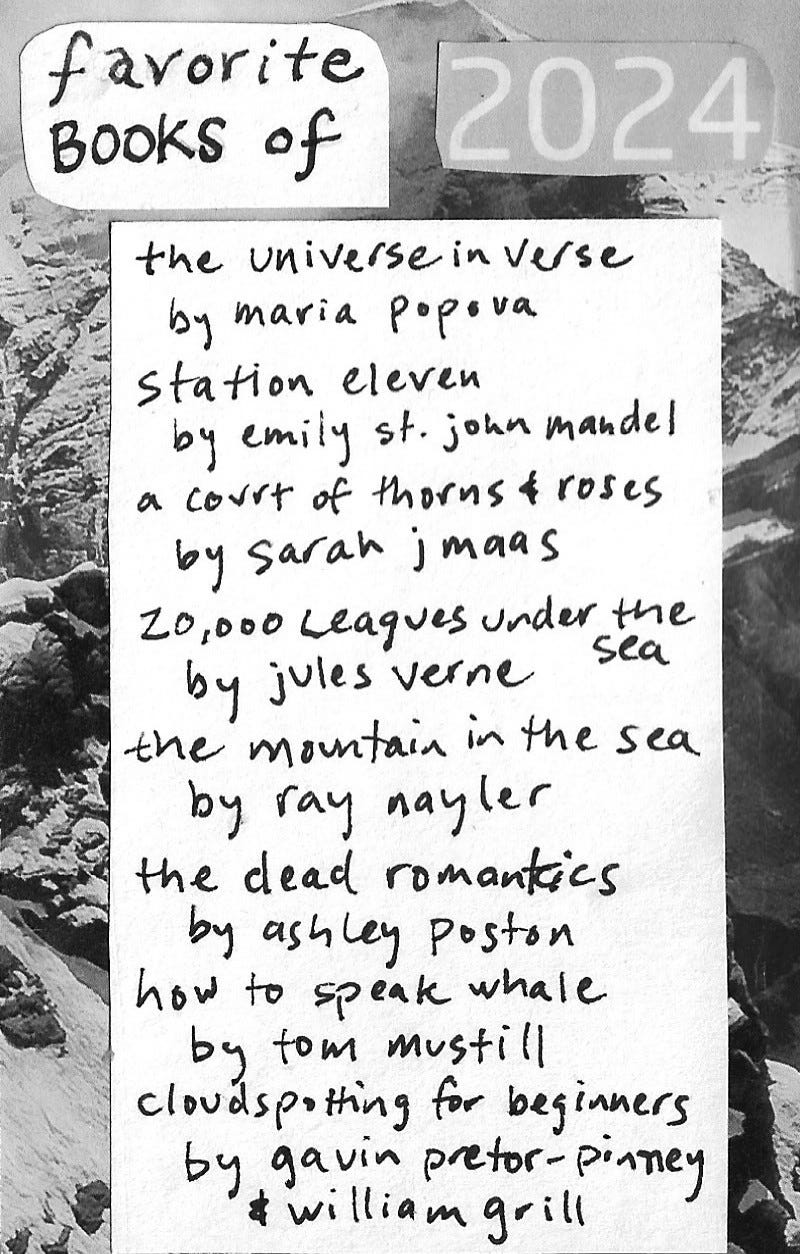 favorite
BOOKS of
2024
the universe in verse
by maria popova
station eleven
by emily st. john mandel
a court of thorns & roses
by sarah j maas
20,000 Leagues under the
sea
by jules verne
the mountain in the sea
by ray nayler
the dead romantics
by ashley poston
how to speak whale
by tom mustill
cloudspotting for beginners
by gavin pretor-pinney
& william grill